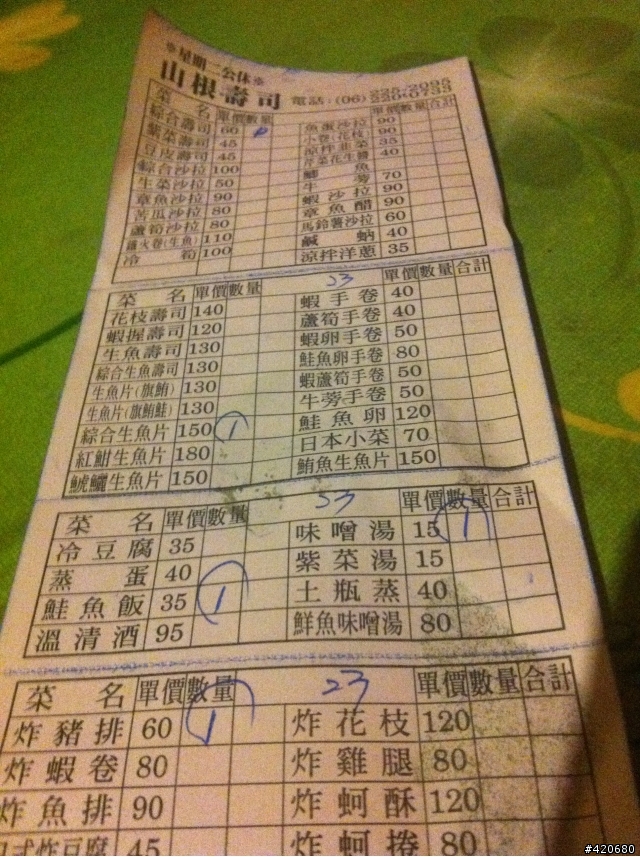 ※星期一公休※
山根壽司 電話：(06)
菜名 單價 數量 單價 數量 合計
綜合壽司 60 魚蛋沙拉 90
紫菜壽司 45 小卷(花枝) 90
豆皮壽司 45 涼拌韭菜 35
綜合沙拉 100 芹菜花生醬 40
生菜沙拉 50 魚
章魚沙拉 90 牛蒡 70
苦瓜沙拉 80 蝦沙拉 90
蘆筍沙拉 80 章魚醋 90
鐵火卷(生魚) 110 馬鈴薯沙拉 60
冷筍 100 鹹蚋 40
涼拌洋蔥 35
菜名 單價 數量 23 單價 數量 合計
花枝壽司 140 蝦手卷 40
蝦握壽司 120 蘆筍手卷 40
生魚壽司 130 蝦卵手卷 50
綜合生魚壽司 130 鮭魚卵手卷 80
生魚片(旗鮪) 130 蝦蘆筍手卷 50
生魚片(旗鮪鮭) 130 牛蒡手卷 50
綜合生魚片 150 1 鮭魚卵 120
紅魽生魚片 180 日本小菜 70
生魚片 150 鮪魚生魚片 150
菜名 單價 數量 23 單價 數量 合計
冷豆腐 35 味噌湯 15 1
蒸蛋 40 紫菜湯 15
鮭魚飯 35 1 土瓶蒸 40
溫清酒 95 鮮魚味噌湯 80
菜名 單價 數量 23 單價 數量 合計
炸豬排 60 1 炸花枝 120
炸蝦卷 80 炸雞腿 80
炸魚排 90 炸蚵酥 120
式炸豆腐 45 炸蚵捲 80
#420680